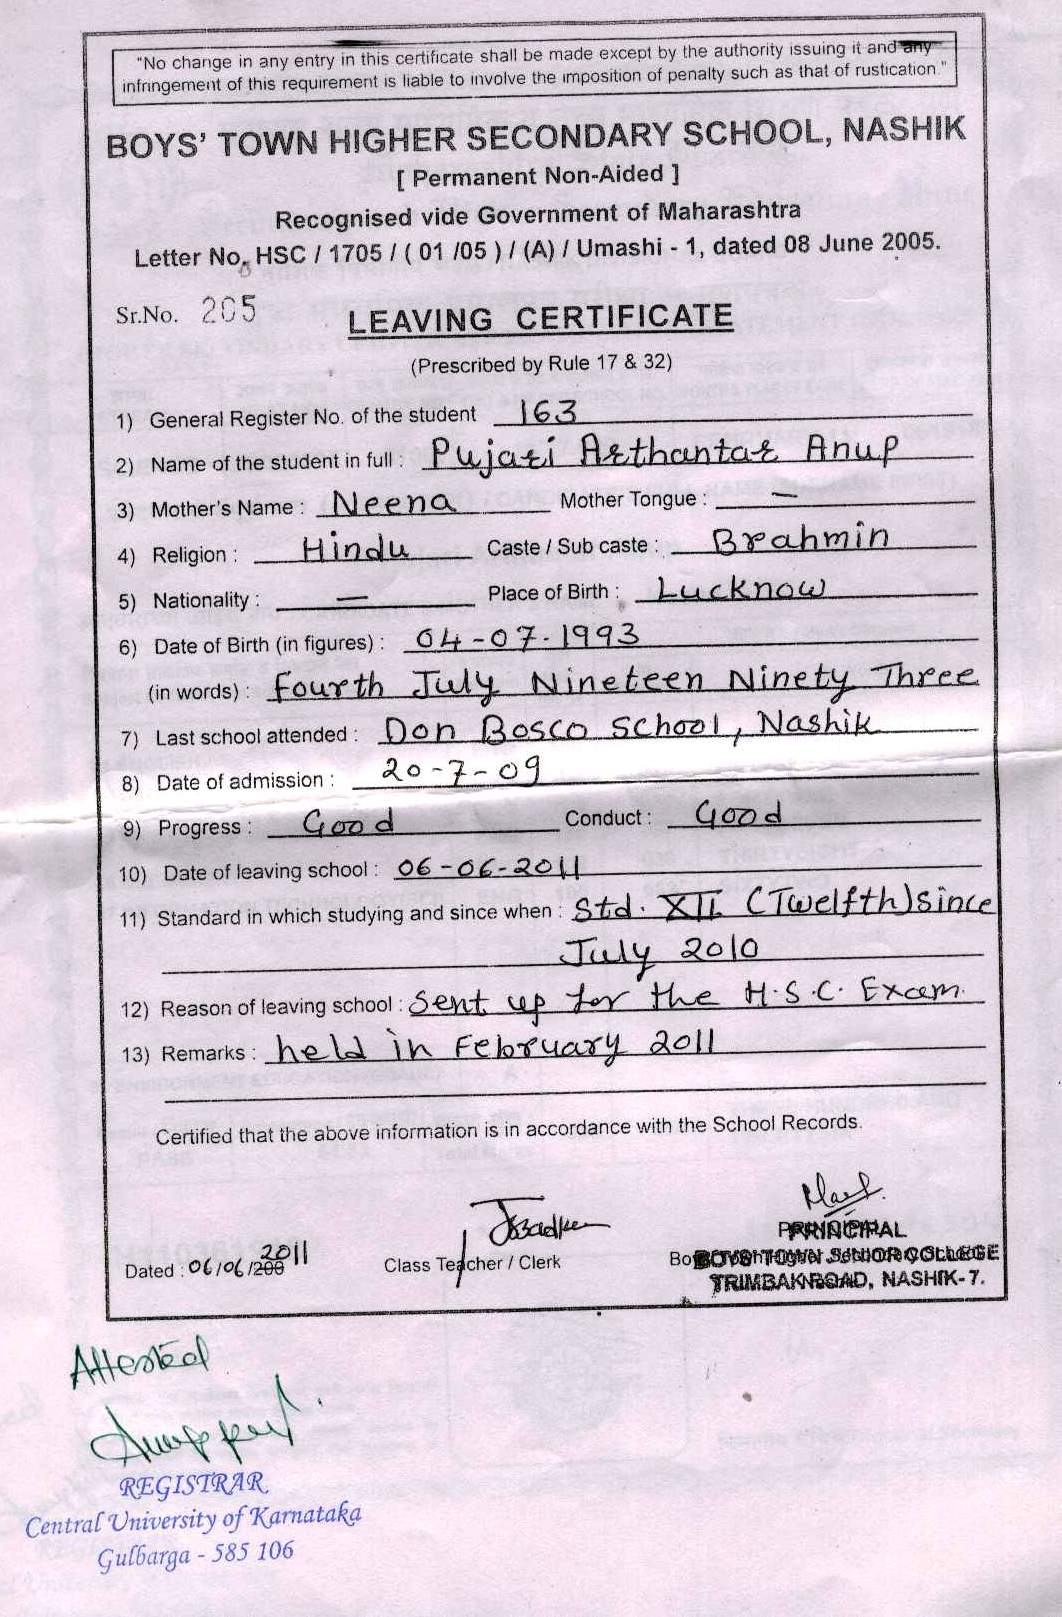 "No change in any entry in this certificate shall be made except by the authority issuing it and any
infringement of this requirement is liable to involve the imposition of penalty such as that of rustication."
BOYS' TOWN HIGHER SECONDARY SCHOOL, NASHIK
[ Permanent Non-Aided ]
Recognised vide Government of Maharashtra
Letter No. HSC / 1705 / ( 01 /05 ) / (A) / Umashi - 1, dated 08 June 2005.
Sr.No. 205
LEAVING CERTIFICATE
(Prescribed by Rule 17 & 32)
1) General Register No. of the student 163
2) Name of the student in full : Pujari Arthantar Anup
3) Mother's Name : Neena Mother Tongue : —
4) Religion : Hindu Caste / Sub caste : Brahmin
5) Nationality : — Place of Birth : Lucknow
6) Date of Birth (in figures) : 04-07-1993
(in words) : Fourth July Nineteen Ninety Three
7) Last school attended : Don Bosco School, Nashik
8) Date of admission : 20-7-09
9) Progress : Good Conduct : Good
10) Date of leaving school : 06-06-2011
11) Standard in which studying and since when : Std. XII (Twelfth) since
July 2010
12) Reason of leaving school : Sent up for the H.S.C. Exam.
13) Remarks : held in February 2011
Certified that the above information is in accordance with the School Records.
PRINCIPAL
Dated : 06/06/200 2011 Class Teacher / Clerk BOYS' TOWN JUNIOR COLLEGE
TRIMBAK ROAD, NASHIK-7.
Attested
REGISTRAR
Central University of Karnataka
Gulbarga - 585 106